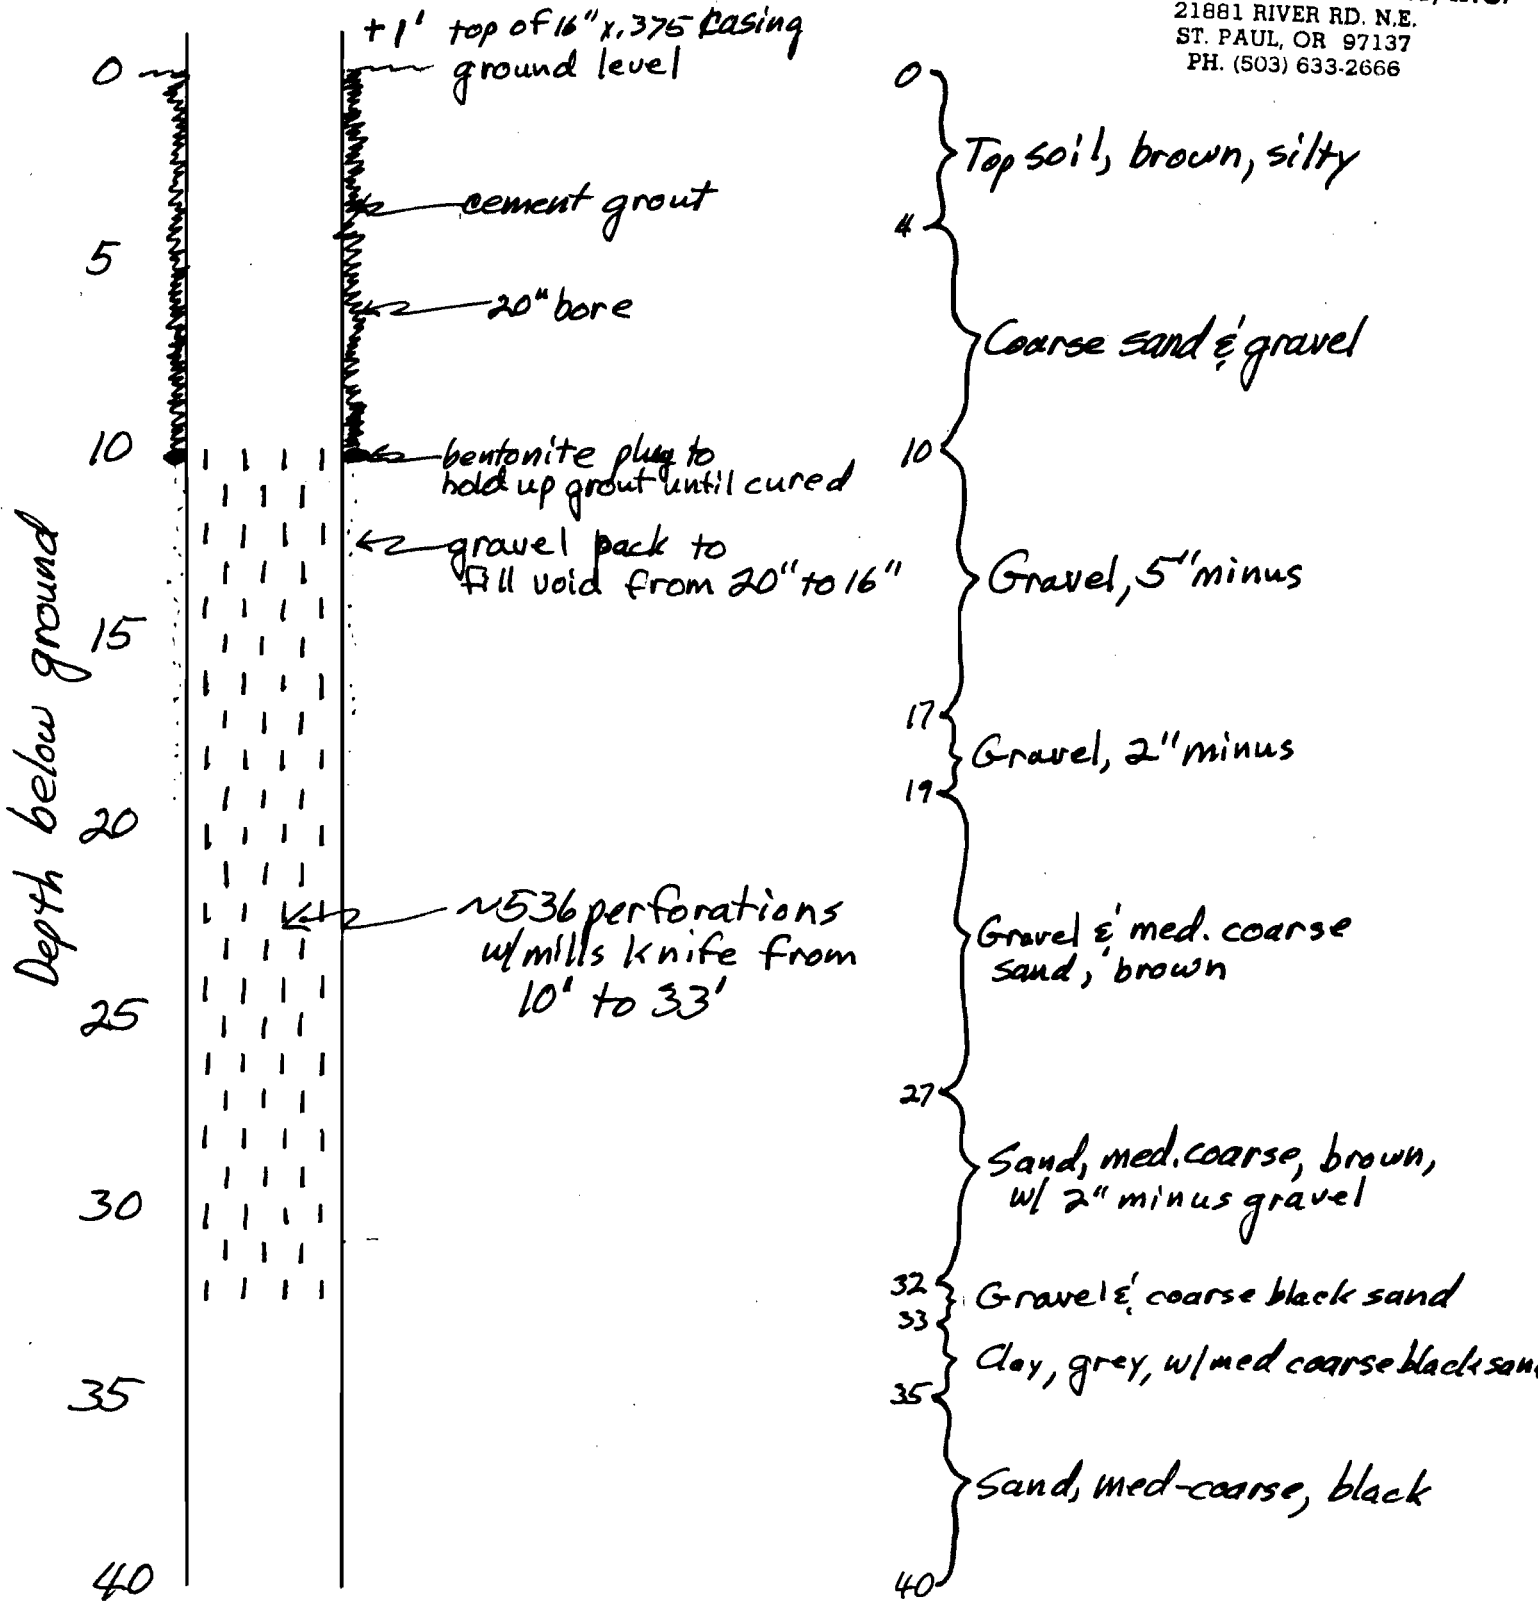 21881 RIVER RD. N.E.
ST. PAUL, OR 97137
PH. (503) 633-2666
+1' top of 16" x .375 casing
ground level
cement grout
20" bore
bentonite plug to
hold up grout until cured
gravel pack to
fill void from 20" to 16"
~536 perforations
w/mills knife from
10' to 33'
Depth below ground
0
5
10
15
20
25
30
35
40
0
Top soil, brown, silty
4
Coarse sand & gravel
10
Gravel, 5" minus
17
Gravel, 2" minus
19
Gravel & med. coarse
sand, brown
27
Sand, med. coarse, brown,
w/ 2" minus gravel
32
Gravel & coarse black sand
33
Clay, grey, w/med coarse black sand
35
Sand, med-coarse, black
40